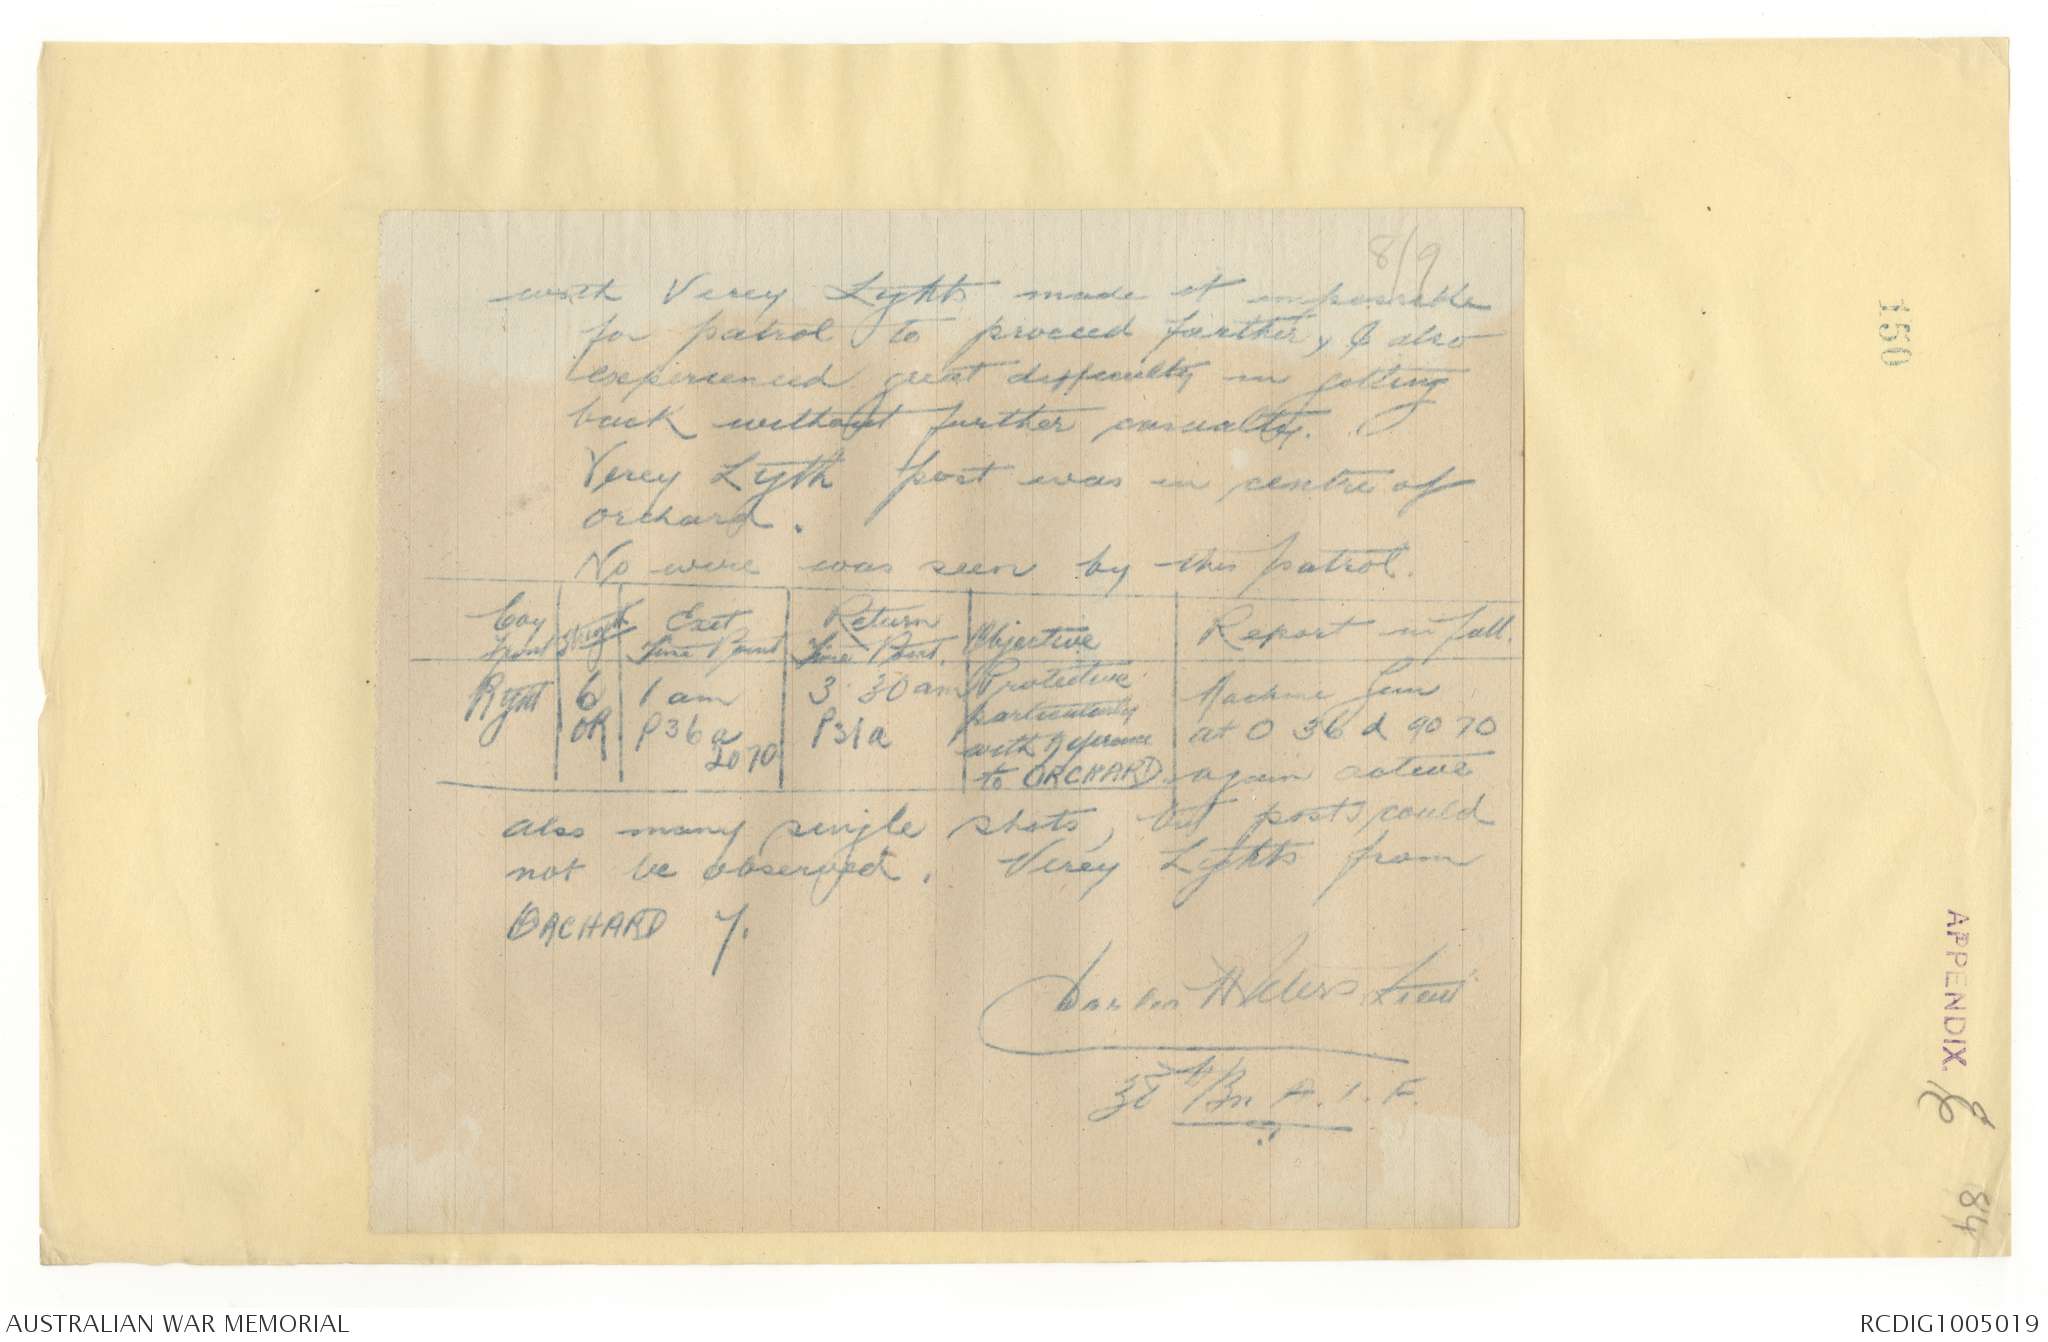 8/9
with Verey Lights made it impossible
for patrol to proceed further, & also
experienced great difficulty in getting
back without further casualty.
Verey Light post was in centre of
orchard.
No wire was seen by this patrol.
Coy Front | Strength | Exit Time Point | Return Time Point. | Objective | Report in full.
Right | 6 OR | 1 am P36a 2070 | 3.30am P31a | Protective particularly with reference to ORCHARD. | Machine Gun at O 36 d 90 70 again active
also many single shots, but posts could
not be observed. Verey Lights from
ORCHARD 7.
Lieut
Bn A.I.F.
150
APPENDIX
84
AUSTRALIAN WAR MEMORIAL
RCDIG1005019